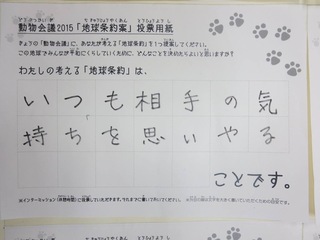 動物会議2015「地球条約案」投票用紙
きょうの「動物会議」に、あなたが考える「地球条約」を1つ提案してください。
この地球でみんなが平和にくらしていくために、どんなことを決めたらよいと思いますか?
わたしの考える「地球条約」は、
いつも相手の気
持ちを思いやる
ことです。